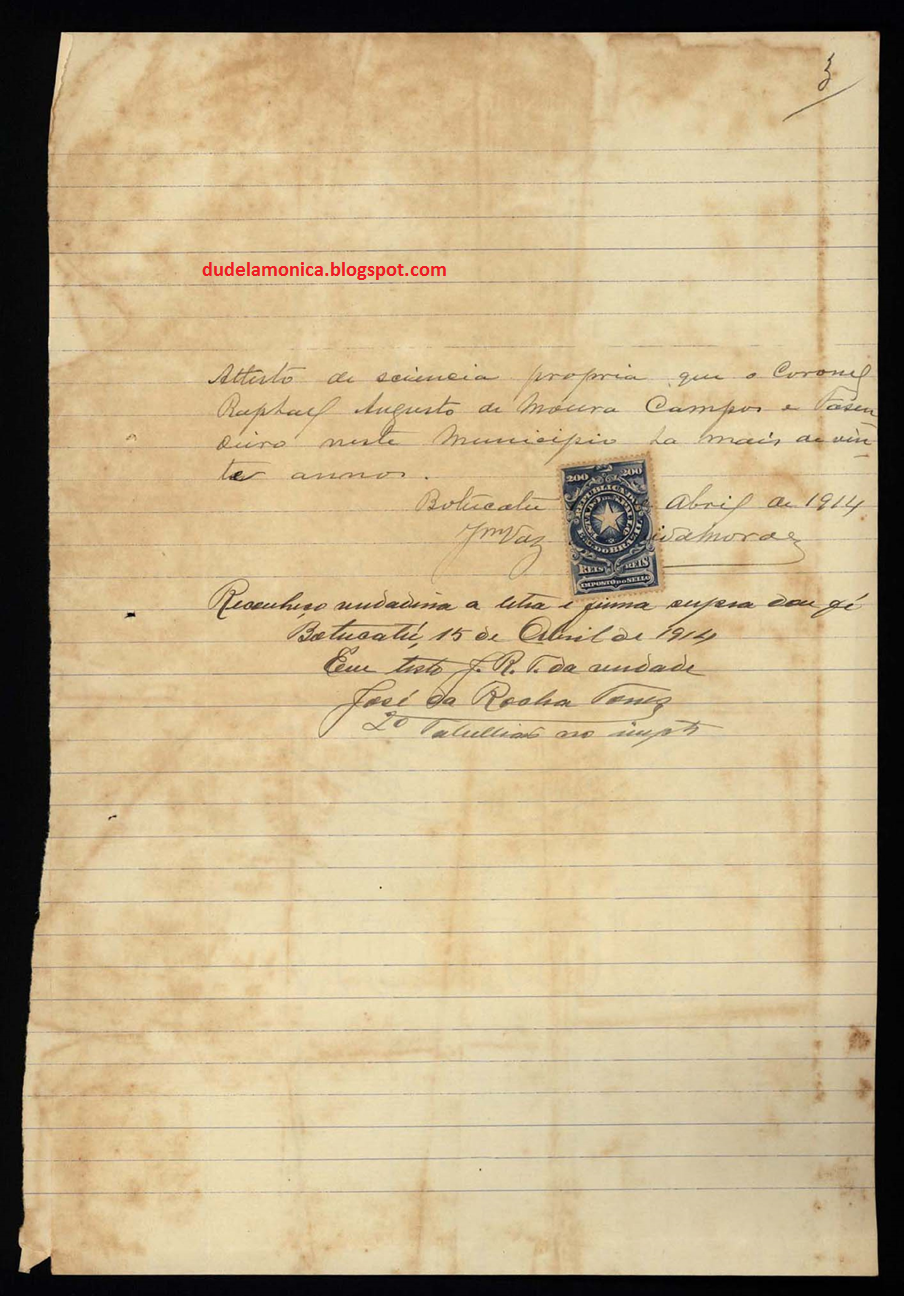 3
dudelamonica.blogspot.com
Attesto de sciencia propria que o Coronel
Raphael Augusto de Moura Campos e Fasen
deiro neste Municipio ha mais de vin-
te annos.
Botucatú Abril de 1914
Vaz
200 200
REPUBLICA DOS
E. U. DO BRAZIL
REIS REIS
IMPOSTO DO SELLO
Reconheço verdadeira a letra e firma supra dou fé
Botucatú, 15 de Abril de 1914
Em testo J. R. T. da verdade
José da Rocha Torres
2º Tabellião no impto